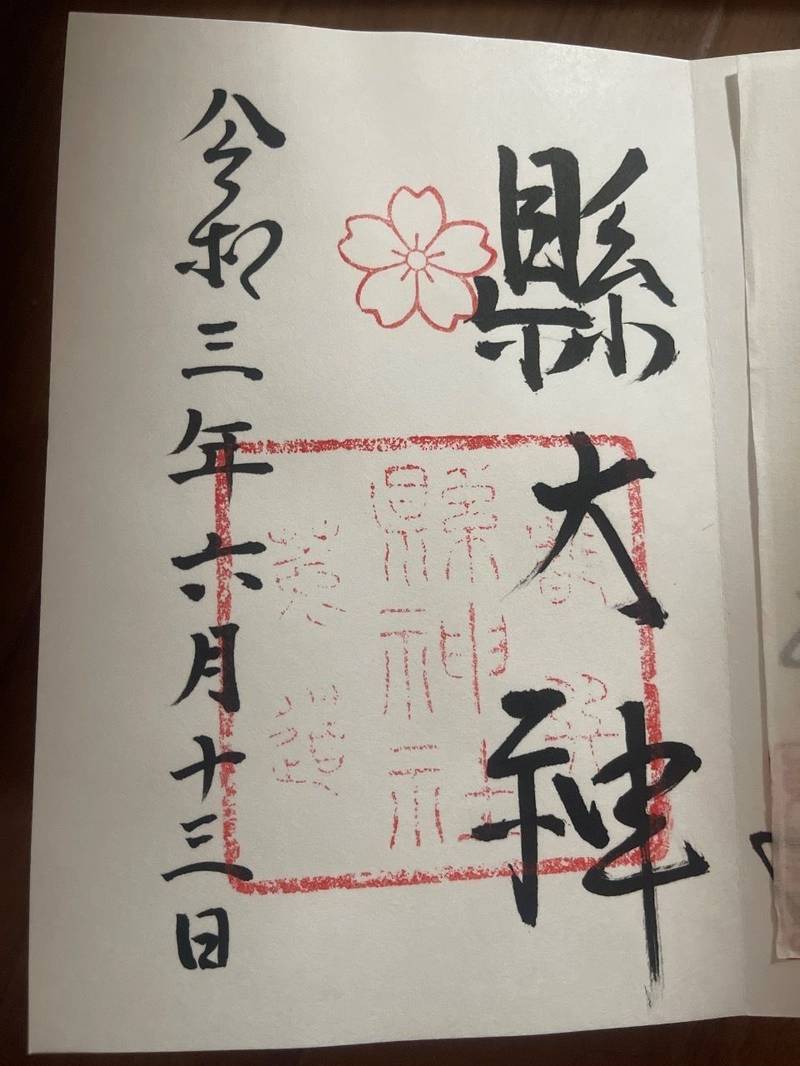 縣大神
縣神社
令和三年六月十三日